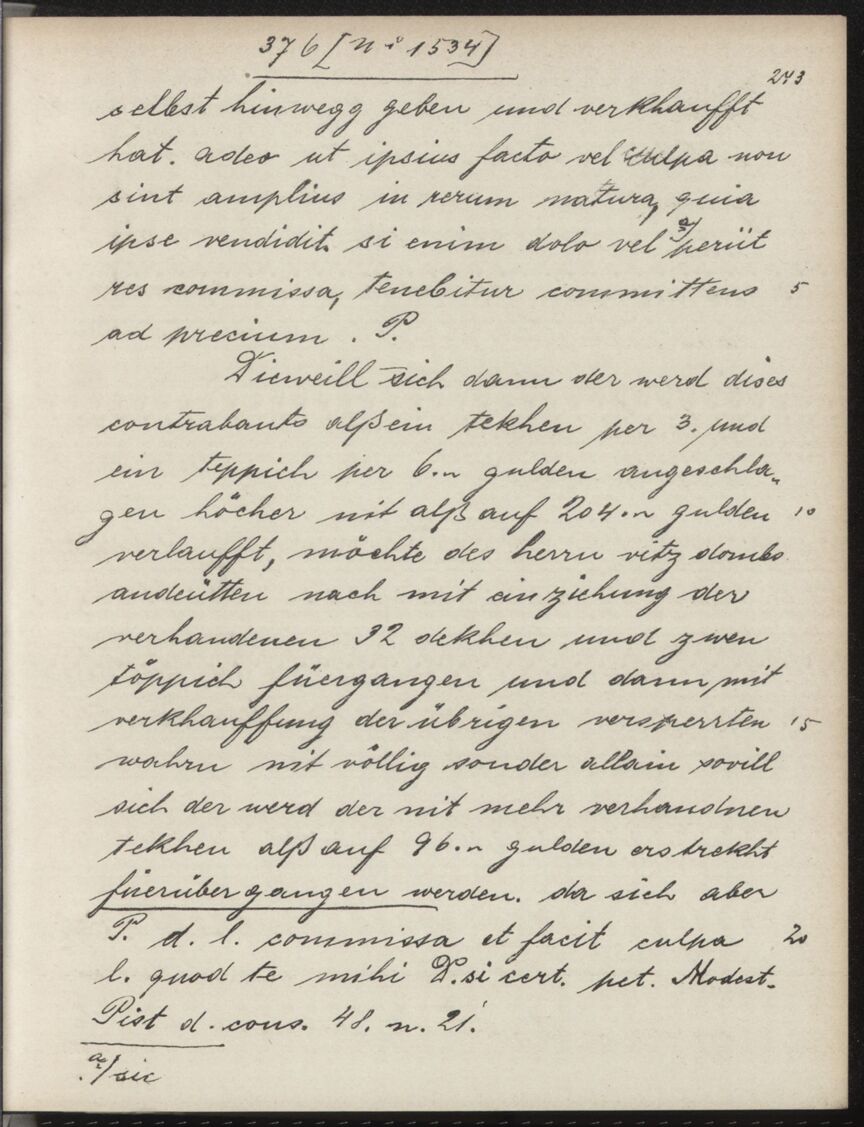 376 [n i 1534]
273
selbst hinwegg geben und verkhaufft
hat. adeo ut ipsius facto vel culpa non
sint amplius in rerum natura, quia
ipse vendidit. si enim dolo vel a/ periit
res commissa, tenebitur committens 5
ad precium. P.
Dieweill sich dann der werd dises
contrabants alß ein tekhen per 3. und
ein teppich per 6.n gulden angeschla„
gen höcher nit alß auf 204.n gulden 10
verlaufft, möchte des herrn vitzdombs
andeütten nach mit einziehung der
verhandenen 32 dekhen und zwen
töppich füergangen und dann mit
verkhauffung der übrigen versperrten 15
wahrn nit völlig sonder allain sovill
sich der werd der nit mehr verhandnen
tekhen alß auf 96.n gulden erstrekht
füerüber gangen werden. da sich aber
P. d. l. commissa et facit culpa 20
l. quod te mihi D. si cert. pet. Modest.
Pist d. cons. 48. n. 21.
a/ sic